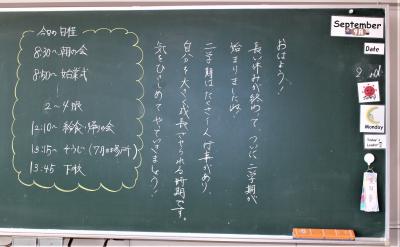 今日の日程
8:30〜朝の会
8:50〜始業式
2〜4限
12:10〜給食・帰りの会
13:15〜そうじ(7月の場所)
13:45 下校
おはよう!
長い休みが終わって、ついに二学期が
始まりましたね!
二学期はたくさん行事があり、
自分を大きく成長させられる時期です。
気をひきしめてやっていきましょう!
September
9月
Date
2nd
Monday
Today's
Leader